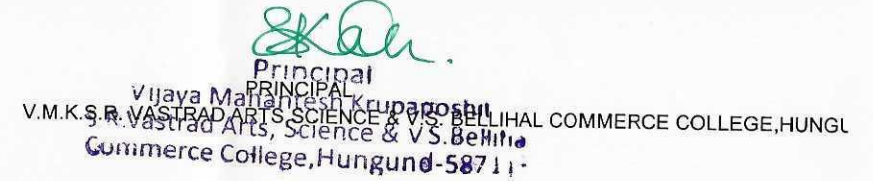 Principal
PRINCIPAL
Vijaya Mahantesh Krupaposhit
V.M.K.S.R. VASTRAD ARTS SCIENCE & V.S. BELLIHAL COMMERCE COLLEGE,HUNGU
S.R.Vastrad Arts, Science & V S.Bellihal
Commerce College,Hungund-58711